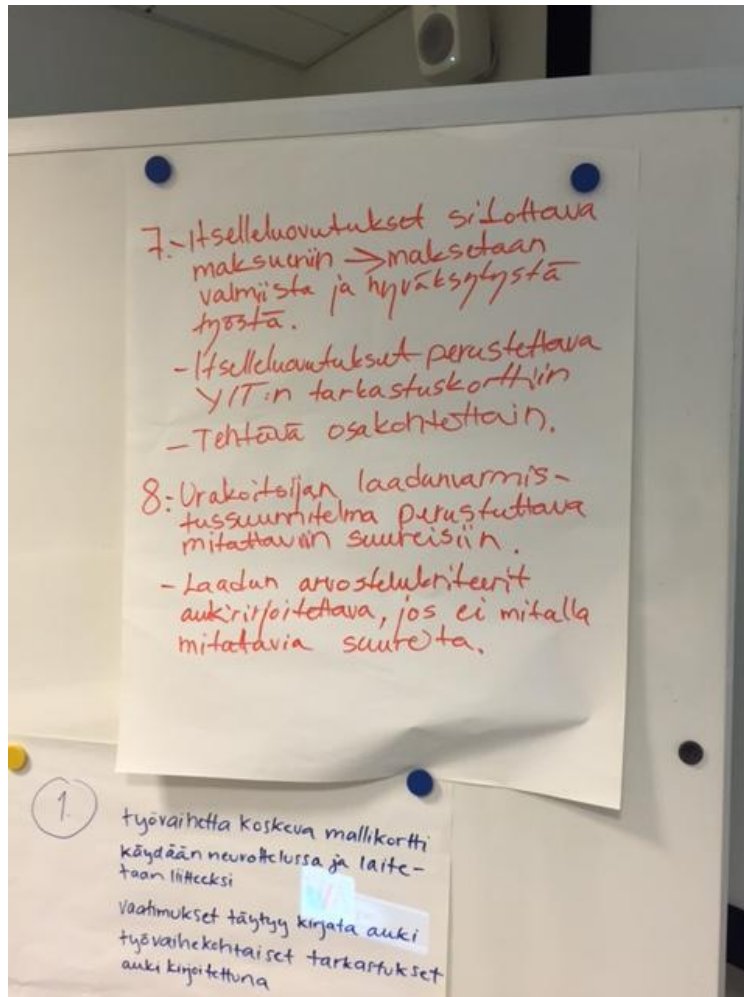 7.-Itselleluovutukset sidottava
maksueriin → maksetaan
valmiista ja hyväksytystä
työstä.
-Itselleluovutukset perustettava
YIT:n tarkastuskorttiin
-Tehtävä osakohteittain.
8.-Urakoitsijan laadunvarmis-
tussuunnitelma perustuttava
mitattaviin suureisiin.
-Laadun arvostelukriteerit
aukikirjoitettava, jos ei mitalla
mitatavia suureita.
1.
työvaihetta koskeva mallikortti
käydään neuvottelussa ja laite-
taan liitteeksi
vaatimukset täytyy kirjata auki
työvaihekohtaiset tarkastukset
auki kirjoitettuna